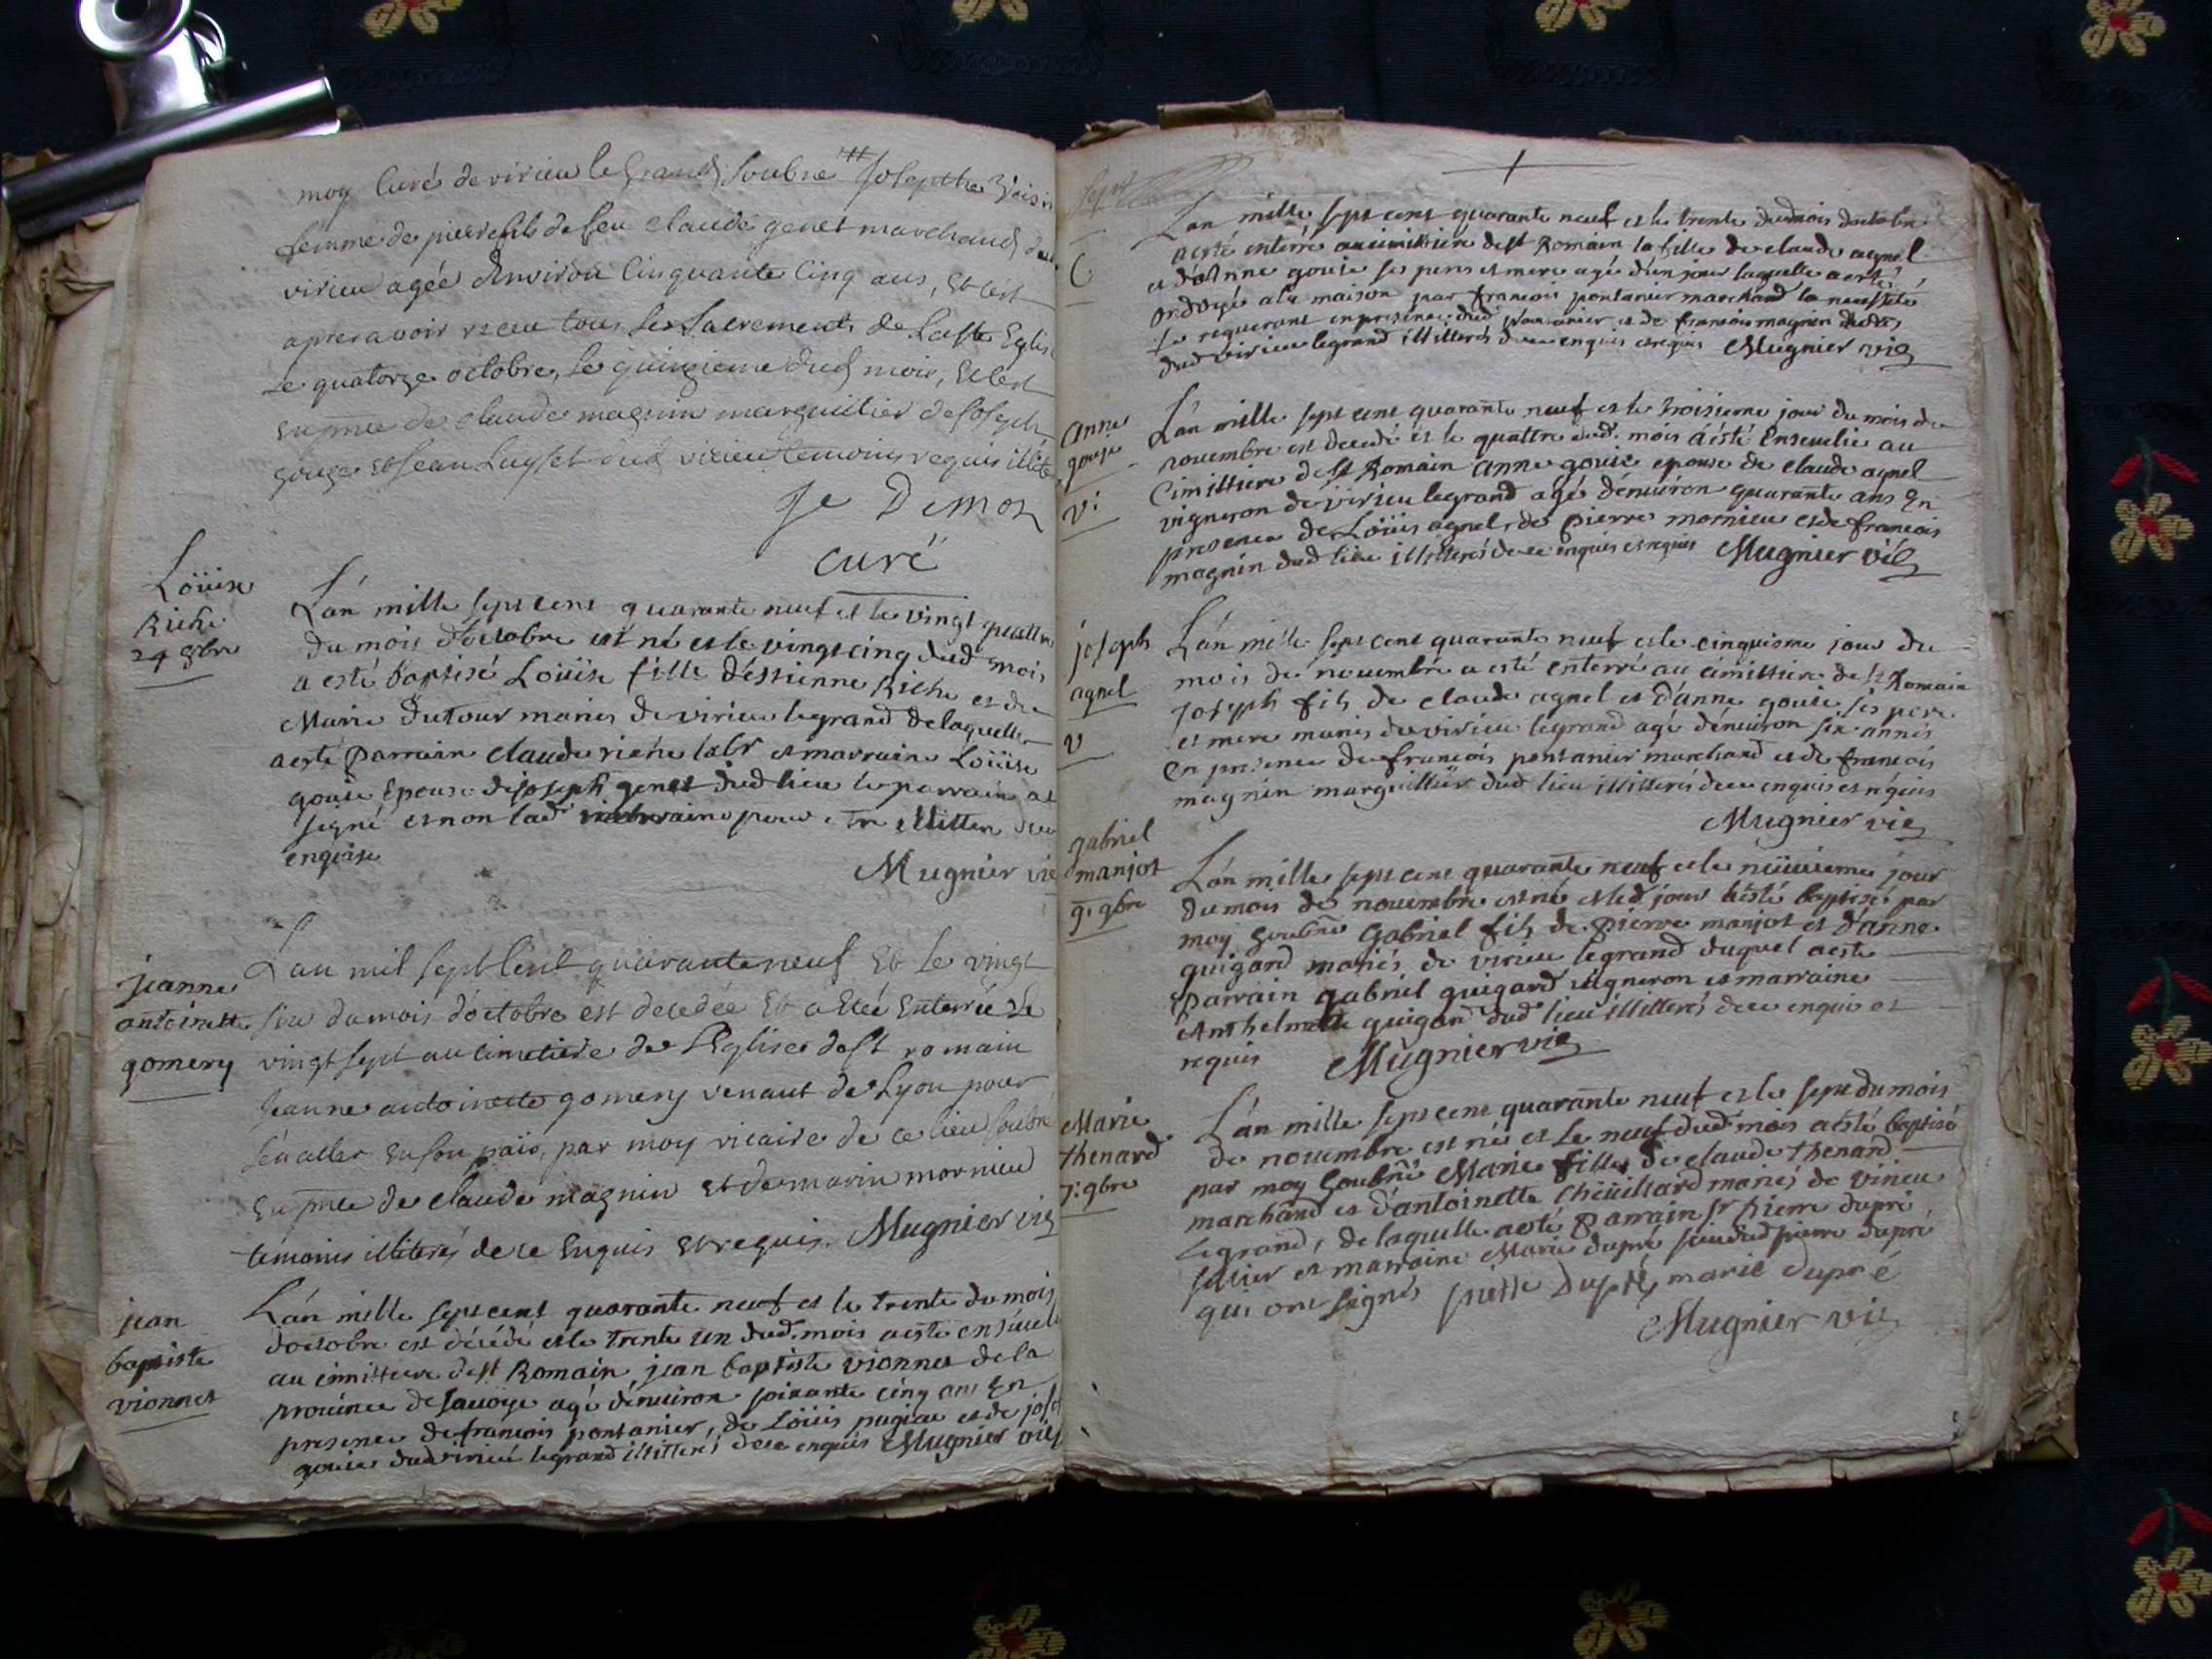 moy Curé de virieu le Grand soubné Josepthe
femme de pierre fils de feu claude genet marchand
virieu agée d'environ Cinquante Cinq ans, Et c'est
apres avoir receu tous les Sacrements de La ste Eglise
Le quatorze octobre, Le quinzieme dud mois, Et c'est
En pnce de claude magnin marguillier de Joseph
gouge Et Jean Luyset dud virieu temoins requis
Je Demon
curé
Loüise
Riche
24 8bre
L'an mille sept cent quarante neuf et le vingt quattre
du mois d'octobre est né et le vingt cinq dud mois
a esté baptisé Loüise fille d'estienne Riche et de
Marie Dutour mariés de virieu legrand de laquelle
a esté parrain claude riche labr et marraine Loüise
gouie Epouse de joseph genet dud lieu le parrain at
signé et non lad marraine pour etre illitteré
enquise
Mugnier vic
jeanne
antoinette
gomery
L'an mil sept Cent quarante neuf Et Le vingt
six du mois d'octobre est decedée Et a Eteé Enterrée Le
vingt sept au Cimetiere de l'Eglise de st romain
Jeanne antoinette gomery venant de Lyon pour
s'en aller En son païs, par moy vicaire de ce lieu soubné
En pnce de claude magnin Et de marin mornieu
témoins illiterés de ce Enquis Et requis. Mugnier vic
jean
baptiste
vionnet
L'an mille sept cent quarante neuf et le trente du mois
d'octobre est décédé et le trente un dud. mois a esté enséueli
au cimittiere de st Romain, jean baptiste vionnet de la
prouince de sauoye agé d'enuiron soixante cinq ans En
presence de francois pontanier, de Loüis pugiau et de jose
gouie dud virieu legrand illitterés de ce enquis Mugnier vic
L'an mille sept cent quarante neuf et le trente dudmois d'octobre
a esté enterré au cimittiere de st Romain la fille de claude agnel
et d'anne gouie ses peres et mere agé d'un jour laquelle a esté
ondoyé a la maison par francois pontanier marchand la necessité
le requerant en presence dud pontanier et de francois magnin
dud virieu legrand illitterés de ce enquis et requis Mugnier vic
anne
gouie
vi
L'an mille sept cent quarante neuf et le troisieme jour du mois de
nouembre est decedé et le quattre dud. mois a esté Enseuelie au
Cimittiere de st Romain anne gouie epouse de claude agnel
vigneron de virieu legrand agé d'enuiron quarante ans En
presence de Loüis agnel, de pierre mornieu et de francois
magnin dud lieu illitterés de ce enquis et requis Mugnier vic
joseph
agnel
v
L'an mille sept cent quarante neuf et le cinquieme jour du
mois de nouembre a esté enterré au cimittiere de st Romain
joseph fils de claude agnel et d'anne gouie ses pere
et mere mariés de virieu legrand agé d'enuiron six annés
en presence de francois pontanier marchand et de francois
magnin marguillier dud lieu illitterés de ce enquis et requis
Mugnier vic
gabriel
manjot
9: 9bre
L'an mille sept cent quarante neuf et le neüuieme jour
du mois de nouembre est né et led jour a esté baptisé par
moy soubné Gabriel fils de pierre manjot et d'anne
guigard mariés de virieu legrand duquel a esté
parrain gabriel guigard vigneron et marraine
Anthelmette guigard dud lieu illitterés de ce enquis et
requis Mugnier vic
Marie
thenard
7: 9bre
L'an mille sept cent quarante neuf et le sept du mois
de nouembre est né et le neuf dud mois a esté baptisé
par moy soubné Marie fille de claude thenard
marchand et d'antoinette mariés de virieu
legrand, de laquelle a esté parrain sr pierre dupré
et marraine Marie dupré dud pierre dupré
qui ont signés pierre dupré, marie dupré
Mugnier vic